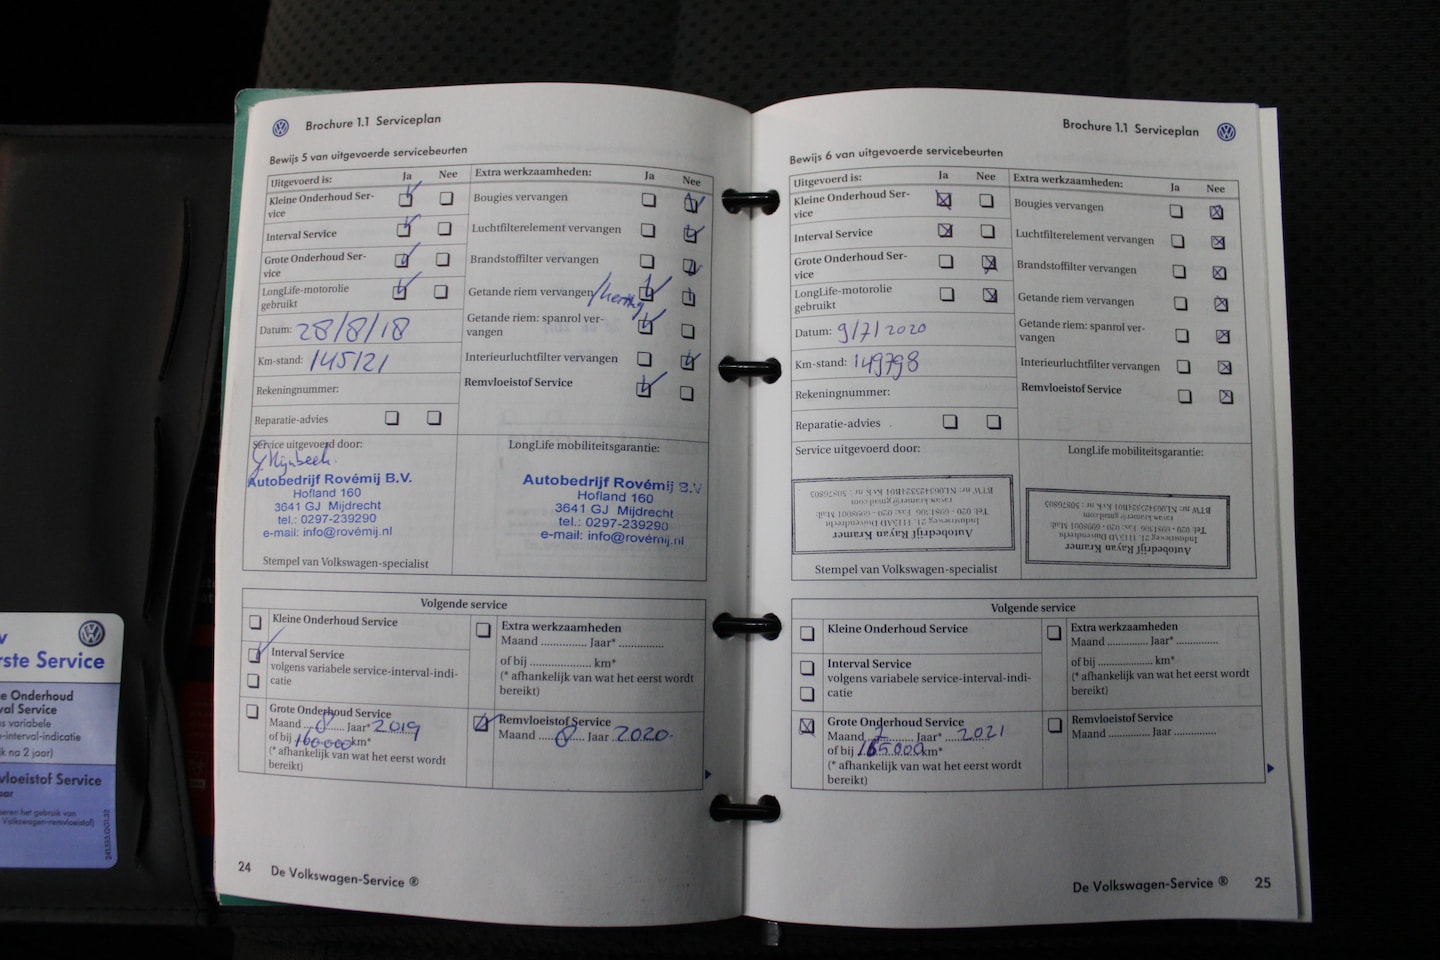 Brochure 1.1 Serviceplan
Bewijs 5 van uitgevoerde servicebeurten
Uitgevoerd is: Ja Nee
Kleine Onderhoud Ser-
vice
Interval Service
Grote Onderhoud Ser-
vice
LongLife-motorolie
gebruikt
Datum: 28/8/18
Km-stand: 145121
Rekeningnummer:
Reparatie-advies
Extra werkzaamheden: Ja Nee
Bougies vervangen
Luchtfilterelement vervangen
Brandstoffilter vervangen
Getande riem vervangen
Getande riem: spanrol ver-
vangen
Interieurluchtfilter vervangen
Remvloeistof Service
Service uitgevoerd door:
Autobedrijf Rovémij B.V.
Hofland 160
3641 GJ Mijdrecht
tel.: 0297-239290
e-mail: info@rovémij.nl
Stempel van Volkswagen-specialist
LongLife mobiliteitsgarantie:
Autobedrijf Rovémij B.V.
Hofland 160
3641 GJ Mijdrecht
tel.: 0297-239290
e-mail: info@rovémij.nl
Volgende service
Kleine Onderhoud Service
Interval Service
volgens variabele service-interval-indi-
catie
Grote Onderhoud Service
Maand ...8... Jaar* 2019
of bij 160000 km*
(* afhankelijk van wat het eerst wordt
bereikt)
Extra werkzaamheden
Maand ............... Jaar* ...............
of bij .................... km*
(* afhankelijk van wat het eerst wordt
bereikt)
Remvloeistof Service
Maand ...8... Jaar 2020
24 De Volkswagen-Service ®
Brochure 1.1 Serviceplan
Bewijs 6 van uitgevoerde servicebeurten
Uitgevoerd is: Ja Nee
Kleine Onderhoud Ser-
vice
Interval Service
Grote Onderhoud Ser-
vice
LongLife-motorolie
gebruikt
Datum: 9/7/2020
Km-stand: 149798
Rekeningnummer:
Reparatie-advies
Extra werkzaamheden: Ja Nee
Bougies vervangen
Luchtfilterelement vervangen
Brandstoffilter vervangen
Getande riem vervangen
Getande riem: spanrol ver-
vangen
Interieurluchtfilter vervangen
Remvloeistof Service
Service uitgevoerd door:
Autobedrijf Rayan Kramer
Industrieweg 21, 1115AD Duivendrecht
Stempel van Volkswagen-specialist
LongLife mobiliteitsgarantie:
Autobedrijf Rayan Kramer
Industrieweg 21, 1115AD Duivendrecht
Volgende service
Kleine Onderhoud Service
Interval Service
volgens variabele service-interval-indi-
catie
Grote Onderhoud Service
Maand ...7... Jaar* 2021
of bij 165.000 km*
(* afhankelijk van wat het eerst wordt
bereikt)
Extra werkzaamheden
Maand ............... Jaar* ...............
of bij .................... km*
(* afhankelijk van wat het eerst wordt
bereikt)
Remvloeistof Service
Maand ............... Jaar ...............
De Volkswagen-Service ® 25
rste Service
e Onderhoud
val Service
s variabele
-interval-indicatie
k na 2 jaar)
vloeistof Service
Volkswagen-remvloeistof)